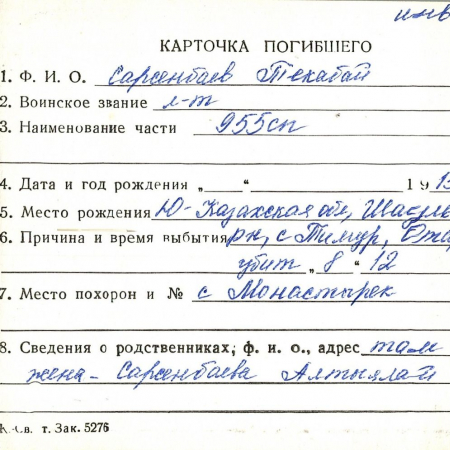 инв
КАРТОЧКА ПОГИБШЕГО
1. Ф. И. О. Сарсенбаев Текабай
2. Воинское звание л-т
3. Наименование части 955сп
4. Дата и год рождения „ “ 191
5. Место рождения Ю-Казахская обл,
6. Причина и время выбытия рн, с Тимур,
убит „ 8 “ 12
7. Место похорон и № с Монастырек
8. Сведения о родственниках, ф. и. о., адрес там
жена- Сарсенбаева Алтыялай
т. Зак. 5276